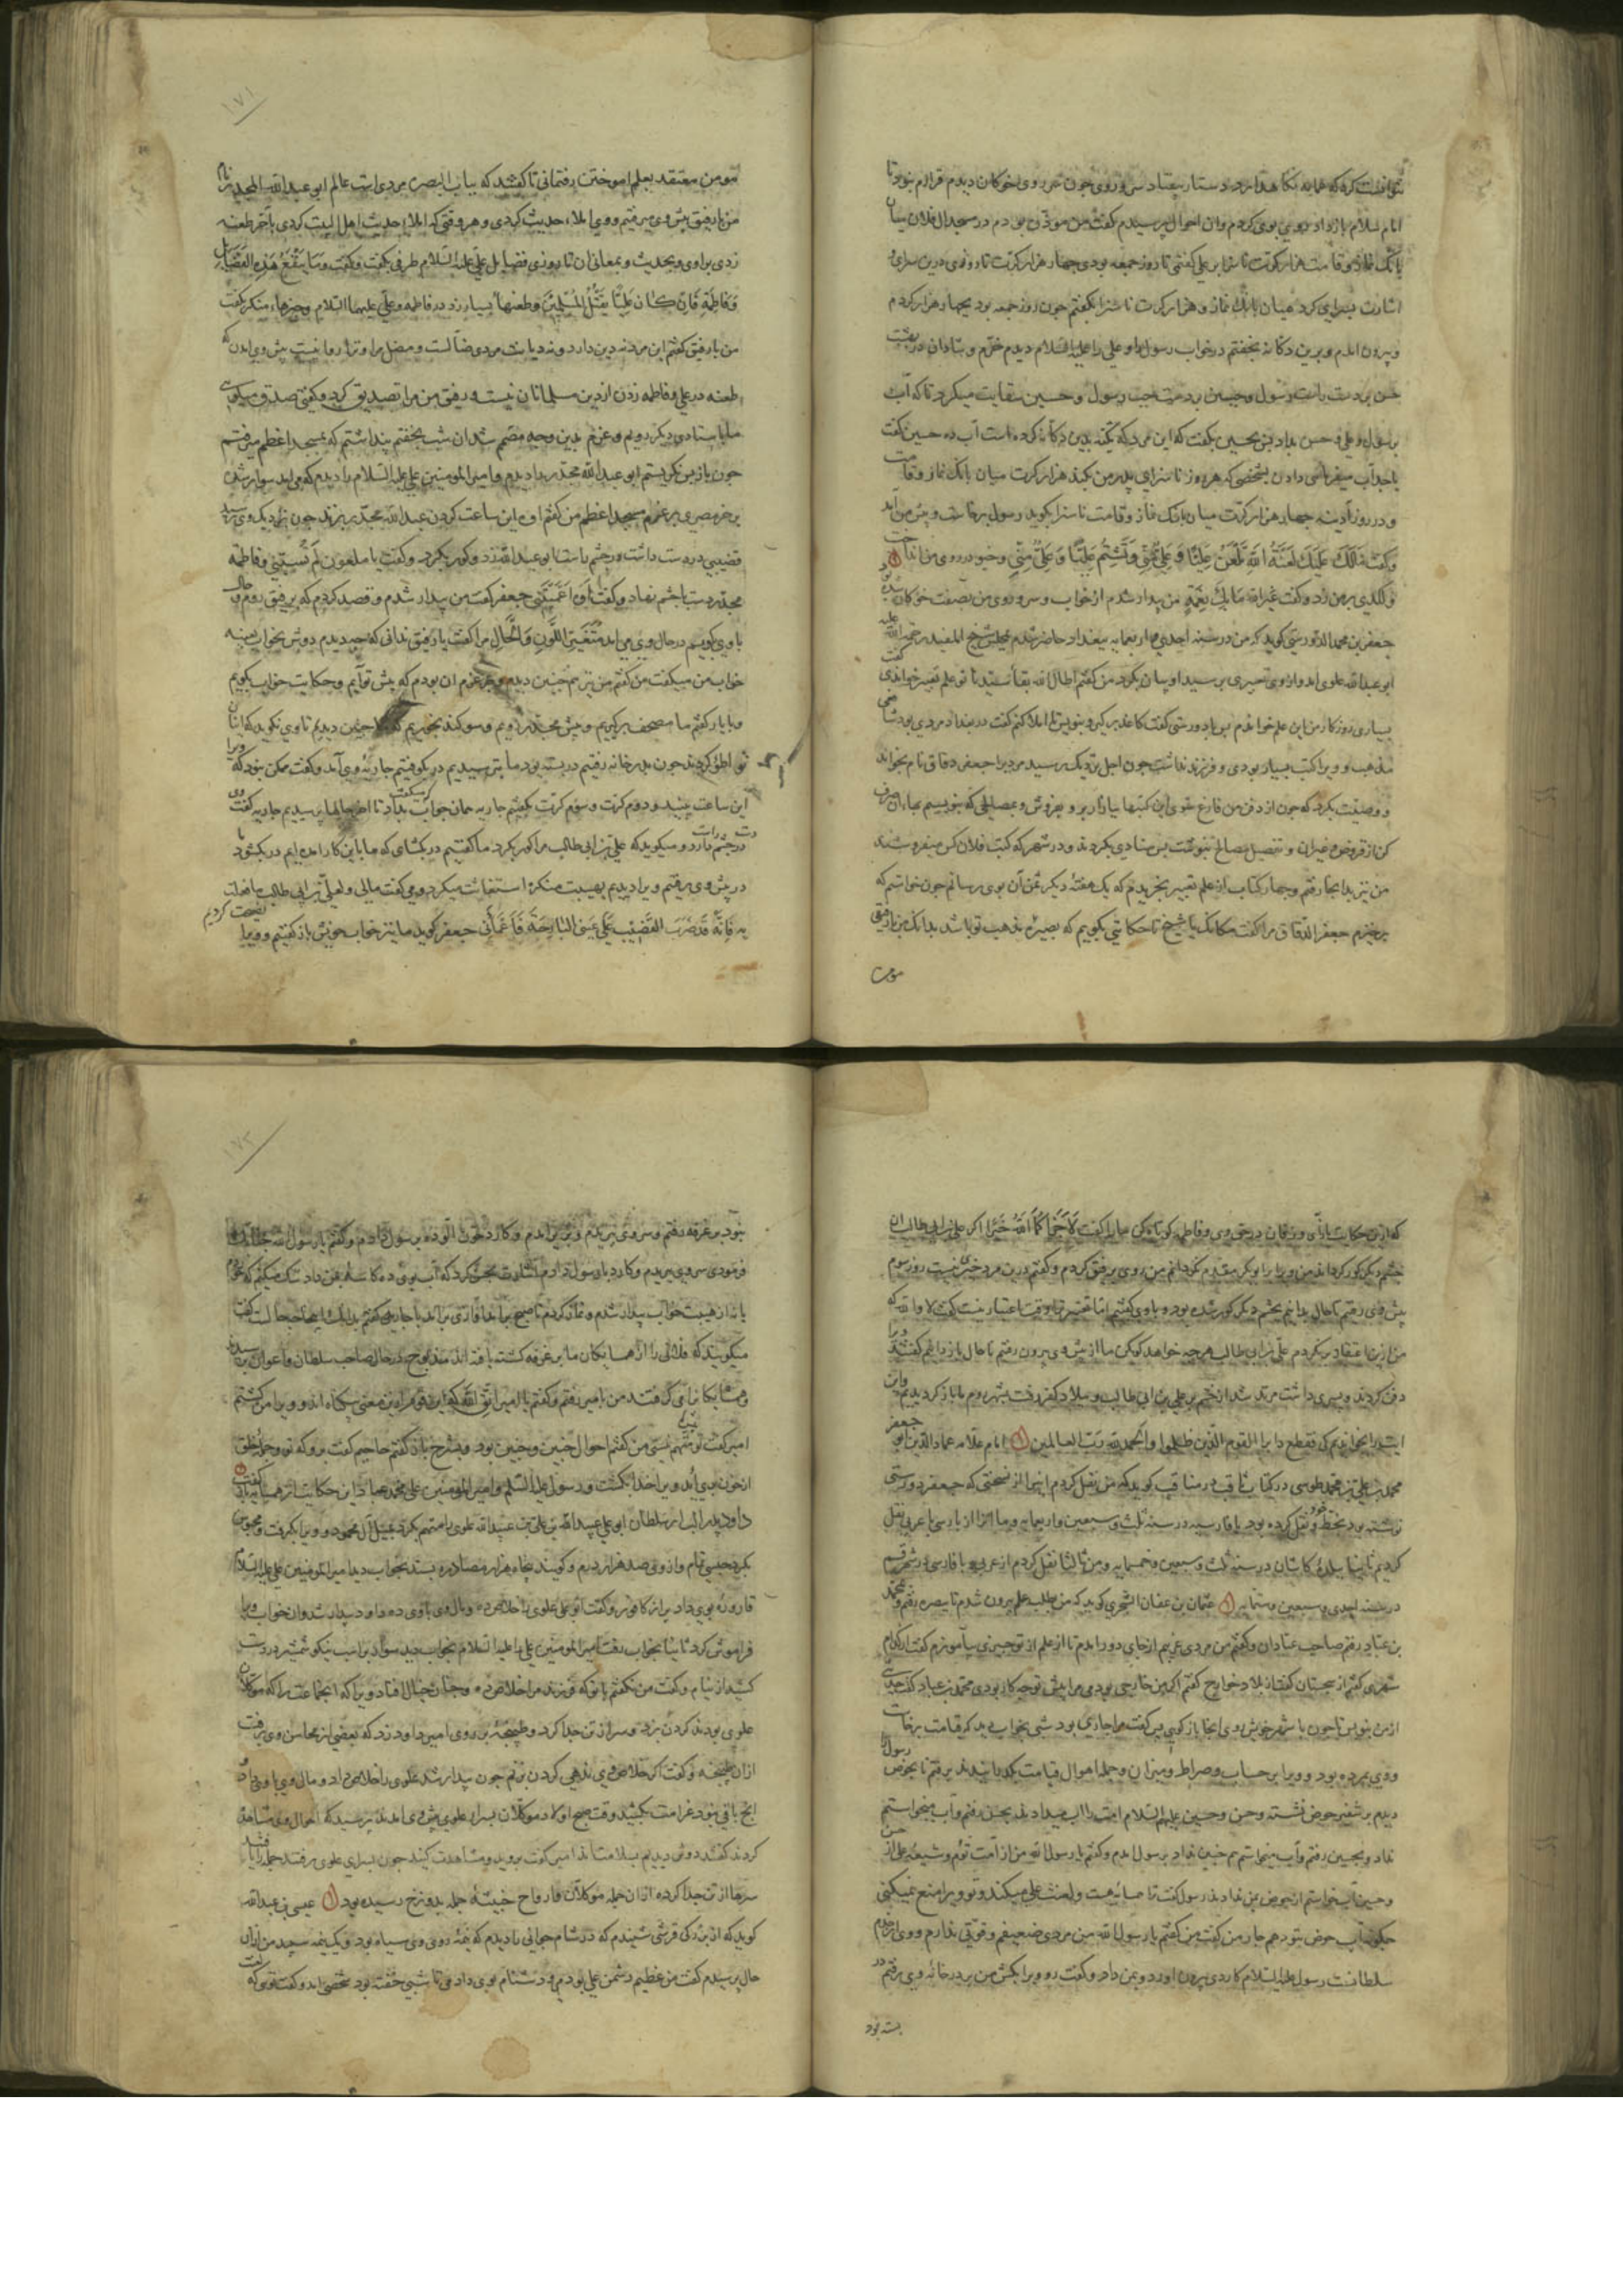 امام سلام باز داد بوی کردم و ان احوال پرسیدم گفت من مؤذن بودم در مسجد ال فلان میان
بانک نماز و قامت هزار کرت ناسزا بر علی گفتمی تا روز جمعه بودی چهار هزار کرت تا روزی درین سرای
اشارت بسرای کرد میان بانک نماز و هزار کرت ناسزا بگفتم چون روز جمعه بود چهار هزار کردم
و بیرون امدم و برین دکانه بخفتم در خواب رسول را و علی را علیه السلام دیدم خرم و شادان در بهشت
حسن بر دست راست رسول و حسین بر دست چپ رسول و حسین سقایت میکرد تا که آب
برسول و علی و حسن بداد پس بحسین بگفت که این مرد که تکیه بدین دکانه کرده است آب ده حسین گفت
یا جداه آب میفرمائی دادن بشخصی که هر روز ناسزای پدر من بکند هزار کرت میان بانک نماز و قامت
و در روز آدینه چهار هزار کرت میان بانک نماز و قامت ناسزا بکوید رسول برخاست و پیش من آمد
و گفت مالک علیک لعنة الله تلعن علیا و علی منی و تشتم علیا و علی منی و خیو در روی من انداخت
و لکدی بر من زد و گفت غیر الله ما بک من نعمة من بیدار شدم از خواب و سر و روی من بصفت خوکان شده بود
جعفر بن محمد الدوریستی کوید که من در سنه احدی و اربعمایه ببغداد حاضر شدم بمجلس شیخ المفید رحمة الله علیه
ابو عبد الله علوی امد و از وی تعبیری پرسید او بیان بکرد من گفتم اطال الله بقاء سیدنا تو علم تعبیر خواندی گفت
بسیاری روزکار من این علم خواندم پس با دوریستی گفت کاغذ برکیر و بنویس تا املا کنم گفت در بغداد مردی بود شافعی
مذهب و ویرا کتب بسیار بودی و فرزند نداشت چون اجل نزدیک رسید مردیرا جعفر دقاق نام بخواند
و وصیت بکرد که چون از دفن من فارغ شوی این کتبها ببازار بر و بفروش و بمصالحی که بنویسم بهاء ان صرف
کن از قروض و غیران و تفصیل مصالح بنوشت پس منادی بکردند و در شهر که کتب فلان کس میفروشند
من نیز بدانجا رفتم و چهار کتاب از علم تعبیر بخریدم که یک هفتهٔ دیگر ثمن آن بوی رسانم چون خواستم که
برخیزم جعفر الدقاق مرا گفت مکانک یا شیخ تا حکایتی بکویم که بصیرة مذهب تو باشد بدانک من با رفیق
مومن
مومن معتقد بعلم اموختن رفتمانی تا گفتند که بباب البصره مردی است عالم ابو عبد الله المحدث نام
من با رفیق پیش وی میرفتم و وی املاء حدیث کردی و هر وقتی که املاء حدیث اهل البیت کردی باخر طعنه
زدی بر اوی و بحدیث و بمعانی ان تا روزی فضایل علی علیه السلام طرفی بگفت و گفت و ما ینفع هذه الفضایل
و فاطمة فان کان علیا یقتل المسلمین و طعنها بسیار زد در فاطمه و علی علیهما السلام و چیزهاء منکر بگفت
من با رفیق گفتم این مرد نه دین دارد و نه دیانت مردی ضالست و مضل مرا و ترا روا نیست پیش وی امدن که
طعنه در علی و فاطمه زدن از دین مسلمانان نیست و رفیق من مرا تصدیق کرد و گفت صدق میکویی
ما با استادی دیکر رویم و عزم بدین وجه مصمم شد ان شب بخفتم پنداشتم که بمسجد اعظم میرفتم
چون باز پس نکریستم ابو عبد الله محدث را دیدم و امیر المومنین علی علیه السلام را دیدم که می امد سوار شده
بر خر مصری بر عزم مسجد اعظم من گفتم اوه این ساعت کردن عبد الله محدث بزند چون نزدیک وی رسید
قضیبی در دست داشت در چشم راست ابو عبد الله زد و کور بکرد و گفت یا ملعون لم تسبنی و فاطمة
محدث دست بر چشم نهاد و گفت اوه اعمیتنی جعفر گفت من بیدار شدم و قصد کردم که بر رفیق روم و حال
با وی بکویم در حال وی می امد متغیر اللون و الحال مرا گفت یا رفیق ندانی که چه دیدم دوش بخواب بعینه
خواب من میگفت من گفتم من نیز هم چنین دیدم و بر عزم ان بودم که پیش تو آیم و حکایت خواب بکویم
و با یار گفتم ما مصحف برکیریم و پیش محدث رویم و سوکند بخوریم که ما چنین دیدیم تا وی نکوید که اینان
تواطؤ کردند چون بدر خانه رفتیم در بسته بود ما بترسیدیم در بکوفتیم جاریهٔ وی آمد و گفت ممکن نبود که ویرا
این ساعت ببینید و دوم کرت و سوم کرت بگفتیم جاریه همان جواب بداد تا اخر حالها پرسیدیم جاریه گفت وی
در چشم دارد و میکوید که علی بن ابی طالب مرا کور بکرد ما گفتیم در بکشای که ما باین کار امده ایم در بکشود
در پیش وی رفتیم و ویرا دیدیم بهیبت منکره استغاثت میکرد و می گفت مالی و لعلی بن ابی طالب ما فعلت
به فانه قد ضرب القضیب علی عینی البارحة فاعمانی جعفر کوید ما نیز خواب خویش باز گفتیم و ویرا نصیحت کردیم
که ازین حکایت باز آی و زفان در حق وی و فاطمه کوتاه کن ما را گفت لا جزاکما الله خیرا اگر علی بن ابی طالب ان
چشم دیکر کور کرداند من ویرا بر ابوبکر مقدم نکردانم من روی بر رفیق کردم و گفتم درین مرد خیری نیست روز سوم
پیش وی رفتم تا حال بدانیم بچشم دیکر کور شده بود و با وی گفتیم اما تعتبر ترا وقت اعتبار نیست گفت لا والله که
من ازین اعتقاد برنکردم علی بن ابی طالب هرچه خواهد کو بکن ما از پیش وی بیرون رفتیم تا حال باز دانیم گفتند ویرا
دفن کردند و پسری داشت مرتد شد از خشم بر علی بن ابی طالب و ببلاد کفر رفت بشهر روم ما باز کردیدیم و این
ایت برانجا خواندیم که فقطع دابر القوم الذین ظلموا والحمد لله رب العالمین امام علامه عماد الدین ابو جعفر
محمد بن علی بن محمد طوسی در کتاب ثاقب در مناقب کوید که من نقل کردم اینها از نسختی که جعفر دوریستی
نوشته بود بخط خود و نقل کرده بود با فارسیه در سنه ثلث و سبعین و اربعمایه و ما انرا از پارسی با عربی نقل
کردیم ثانیا ببلدهٔ کاشان در سنه ثلث و سبعین و خمسمایه و من ثالثا نقل کردم از عربی با فارسی در شهر قم
در سنه احدی و سبعین و ستمایه عثمان بن عفان السجزی کوید که من بطلب علم بیرون شدم تا ببصره رفتم و محمد
بن عباد رفتم صاحب عبادان و گفتم من مردی غریبم از جای دور امدم تا از علم از تو چیزی بیاموزم گفت از کدام
شهری گفتم از سجستان گفت از بلاد خوارج گفتم اگر من خارجی بودمی مرا پیش تو چه کار بودی محمد بن عباد گفت حدیثی
ازمن بنویس تا چون با شهر خویش روی انجا باز کویی پس گفت مرا جاری بود شبی بخواب دید که قیامت برخاست
و وی بمرده بود و ویرا بر حساب و صراط و میزان و جمله اهوال قیامت بگذرانیدند برفتم تا بحوض رسول
دیدم بر شفیر حوض نشسته و حسن و حسین علیهم السلام امت را اب میدادند بحسن رفتم و آب میخواستم
نداد و بحسین رفتم و آب میخواستم هم چنین نداد برسول امدم و گفتم یا رسول الله من از امت توم و شیعهٔ علی از حسن
و حسین آب خواستم از حوض بمن ندادند رسول گفت ترا همسایه هست و لعنت علی میکند و تو ویرا منع نمیکنی
چکونه آب حوض بتو دهم جار من گفت من گفتم یا رسول الله من مردی ضعیفم و قوتی ندارم و وی از خدم
سلطانست رسول علیه السلام کاردی بیرون اورد و بمن داد و گفت رو ویرا بکش من بر در خانهٔ وی رفتم در
بسته نبود
نبود بر غرفه رفتم و سر وی ببریدم و بزیر امدم و کارد خون الوده برسول دادم و گفتم یا رسول الله
فرمودی سر وی ببریدم و کارد با رسول دادم اشارت بحسن کرد که آب بوی ده کاسه بمن داد شک میکنم که بخوردم
یا نه از هیبت خواب بیدار شدم و نماز کردم تا صبح برامد اوازی برامد با جاریه گفتم بدانک این چه حالست گفت
میگویند که فلانی را از همسایکان ما بر غرفه کشته یافته اند
و همسایکانرا می گرفتند من بامیر رفتم و گفتم یا امیر اتق الله که این قوم ازین معنی بیکناه اند و ویرا من کشتم
امیر گفت تو متهم نیستی من گفتم احوال چنین و چنین بود و بشرح باز گفتم حاجیم گفت برو که تو و جمله خلق
از خون وی بری اید ویرا خدا بکشت و رسول علیه السلم و امیر المومنین علی محمد عباد این حکایت از همسایه باز گفت
داود پدر الب ارسلان سلطان ابو علی عبید الله بن علی بن عبید الله علوی را متهم بکرد بمیل آل محمود و ویرا بکرفت و محبوس
بکرد حبسی تمام و از وی صد هزار درم و کویند پنجاه هزار مصادره بستد بخواب دید امیر المومنین علی علیه السلام
قارورهٔ بوی داد پر از کافور و گفت ابو علی علوی را خلاص ده و مال وی با وی ده داود بیدار شد و ان خواب ویرا
فراموش کرد ثانیا بخواب رفت امیر المومنین علی را علیه السلام بخواب دید سوار بر اسب نیکو شمشیر در دست
کشیده از نیام و گفت من نگفتم با تو که فرزند مرا خلاص ده و چنان خیال افتاد ویرا که انجماعت را که موکلان
علوی بودند کردن بزد و سر از تن جدا کرد و طپنجهٔ بر روی امیر داود زد که بعضی از محاسن وی برفت
ازان طپنجه و گفت اکر خلاص وی ندهی کردن بزنم چون بیدار شد علوی را خلاص داد و مال وی با وی داد
انچ باقی بود غرامت بکشید وقت صبح اولاد موکلان بسرای علوی پیش وی امدند پرسید که احوال وی مشاهده
کردند گفتند دوش دیدیم بسلامت اما امیر گفت بروید و مشاهدت کنید چون بسرای علوی رفتند جمله را یافتند
سرها از تن جدا کرده ازان جمله موکلان و ارواح خبیثه جمله بدوزخ رسیده بود عیسی بن عبد الله
کوید که از بزرکی قرشی شنیدم که در شام جوانی را دیدم که نیمهٔ روی وی سیاه بود و یک نیمه سپید من ازان
حال پرسیدم گفت من عظیم دشمن علی بودم و دشنام بوی دادمی تا شبی خفته بودم شخصی امد و گفت توی که